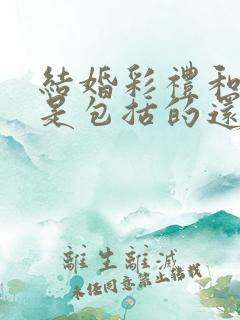 結婚彩禮和
是包括的還
離生離滅
未經同意禁止轉載